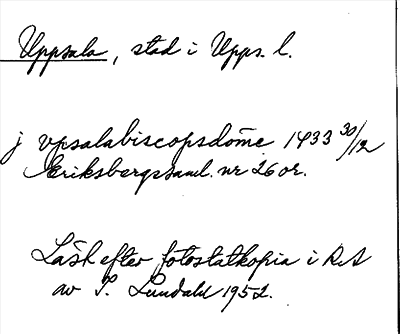 Uppsala, stad i Upps. l.
j vpsalabiscopsdōme 1433 30/12
Eriksbergssaml. nr 26 or.
Läst efter fotostatkopia i RA
av S. Lundahl 1952.